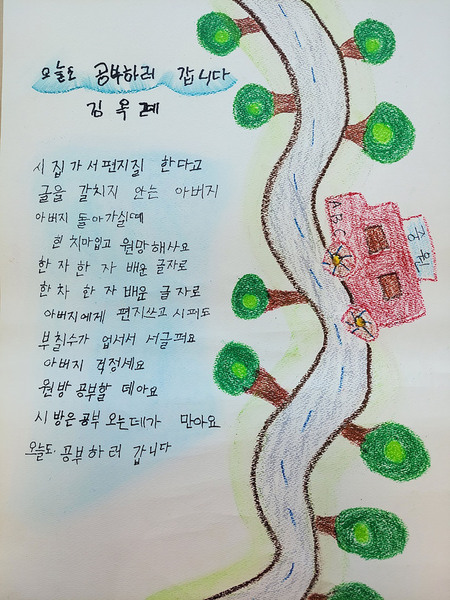 오늘도 공부하러 갑니다
김옥례
시집가서 편지질 한다고
글을 갈치지 안는 아버지
아버지 돌아가실때
한 치마입고 원만해사요
한자 한자 배운 글자로
한자 한자 배운 글자로
아버지에게 편지쓰고 시퍼도
부칠수가 업서서 서글퍼요
아버지 걱정세요
원방 공부할 데아요
시방은 공부 오는데가 만아요
오늘도 공부하러 갑니다
ABC